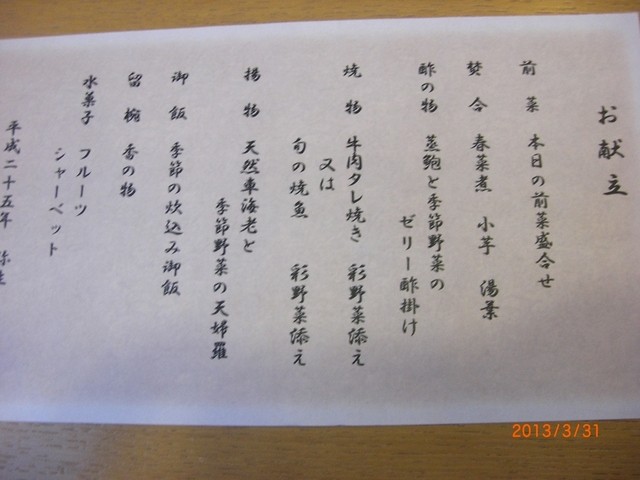 お献立
前菜 本日の前菜盛合せ
焚合 春菜煮 小芋 湯葉
酢の物 蒸鮑と季節野菜の
ゼリー酢掛け
焼物 牛肉タレ焼き 彩野菜添え
又は
旬の焼魚 彩野菜添え
揚物 天然車海老と
季節野菜の天婦羅
御飯 季節の炊込み御飯
留椀 香の物
水菓子 フルーツ
シャーベット
平成二十五年 弥生
2013/3/31